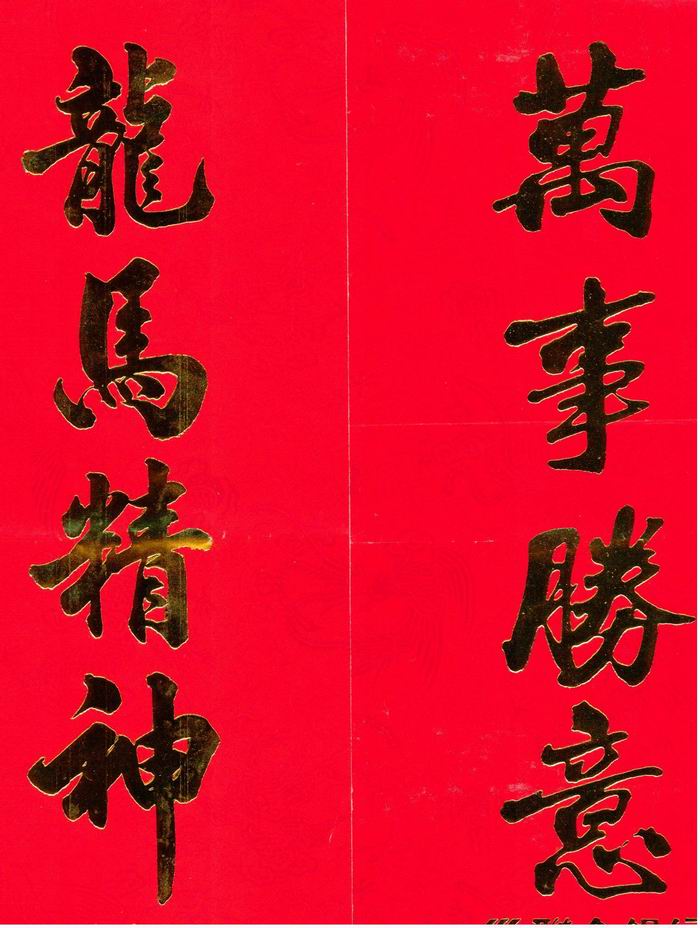 萬事勝意
龍馬精神